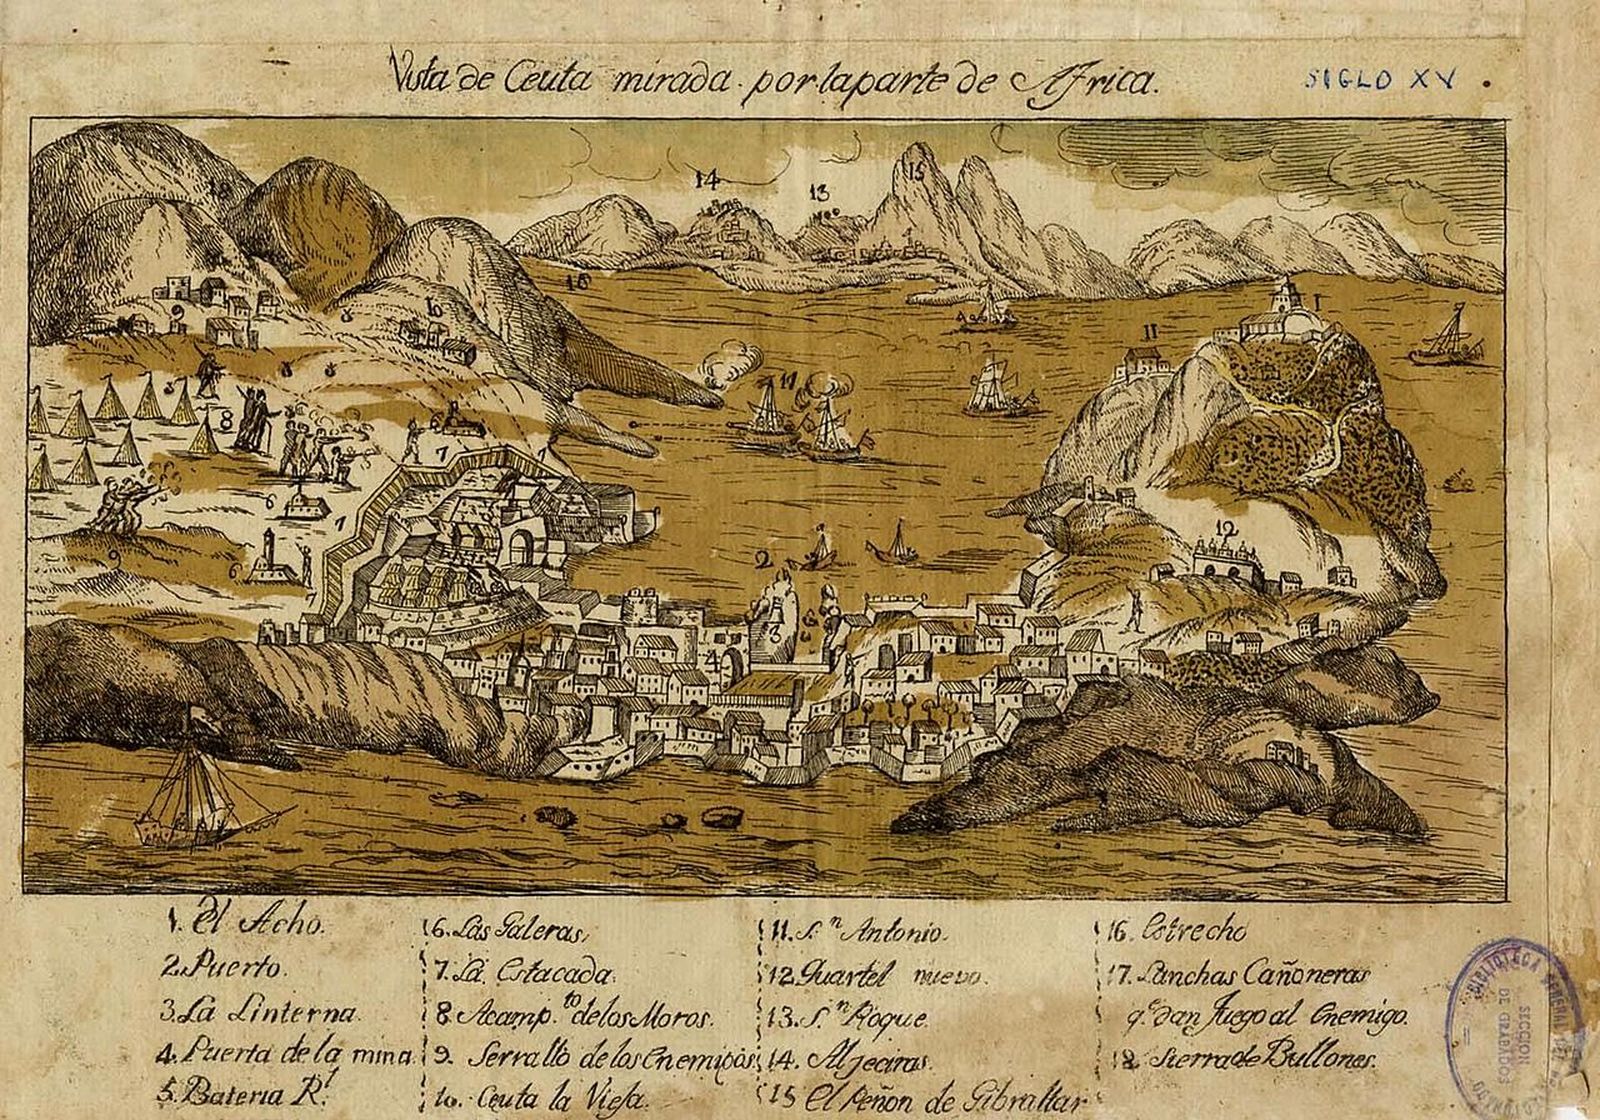 Vista de Ceuta mirada por la parte de Africa.
SIGLO XV
1. El Acho.
2. Puerto.
3. La Linterna.
4. Puerta de la mina.
5. Bateria R.l
6. Las Galeras,
7. La Estacada.
8 Acamp.to de los Moros.
9. Serrallo de los Enemigos
10. Ceuta la Vieja.
11. S.n Antonio.
12 Quartel nuevo.
13. S.n Roque.
14. Aljeciras.
15 El Peñon de Gibraltar
16. Estrecho
17. Lanchas Cañoneras
q.e dan fuego al Enemigo.
18. Sierra de Bullones.
BIBLIOTECA GENERAL
SECCION
DE GRABADOS